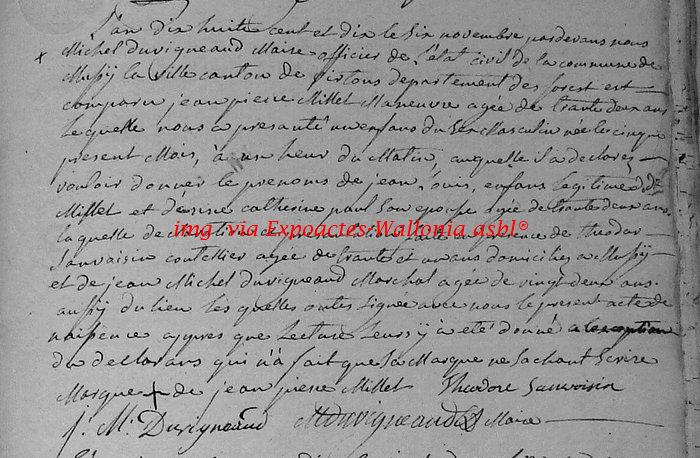 L'an dix huite cent et dix le six novembre pardevans nous
Michel Duvigneaud Maire officier de l'état civil de la commune de
Mussÿ la ville canton de virtons departement des forest est
comparu jean pierre Millet Maneuvre agée de trante deux ans
lequelle nous a presanté un enfans du sex Masculin née le cinque
present Mois, à un heur du Matin, auquelle il a declarer
vouloir donner le prenoms de jean Louis, enfans legitime
Millet et catherine paul son epouse agée de trante deux ans
laquelle de en presence de theodor
img via Expoactes-Wallonia asbl®
Sauvaisin coutellier agée de trante et un ans domiciliés a Mussÿ
et de jean Michel Duvigneaud Marchal agée de vingt deux ans
aussÿ du lieu les quelles ontes signee avec nous le present acte de
naissence appres que Lecture Leurs ÿ a eté donné a lexception
du declarans qui n'a fait que sa Marque ne sachant Ecrire
Marque + de jean pierre Millet Theodore Sauvaisin
j. M. Duvigneaud MDuvigneaud Maire